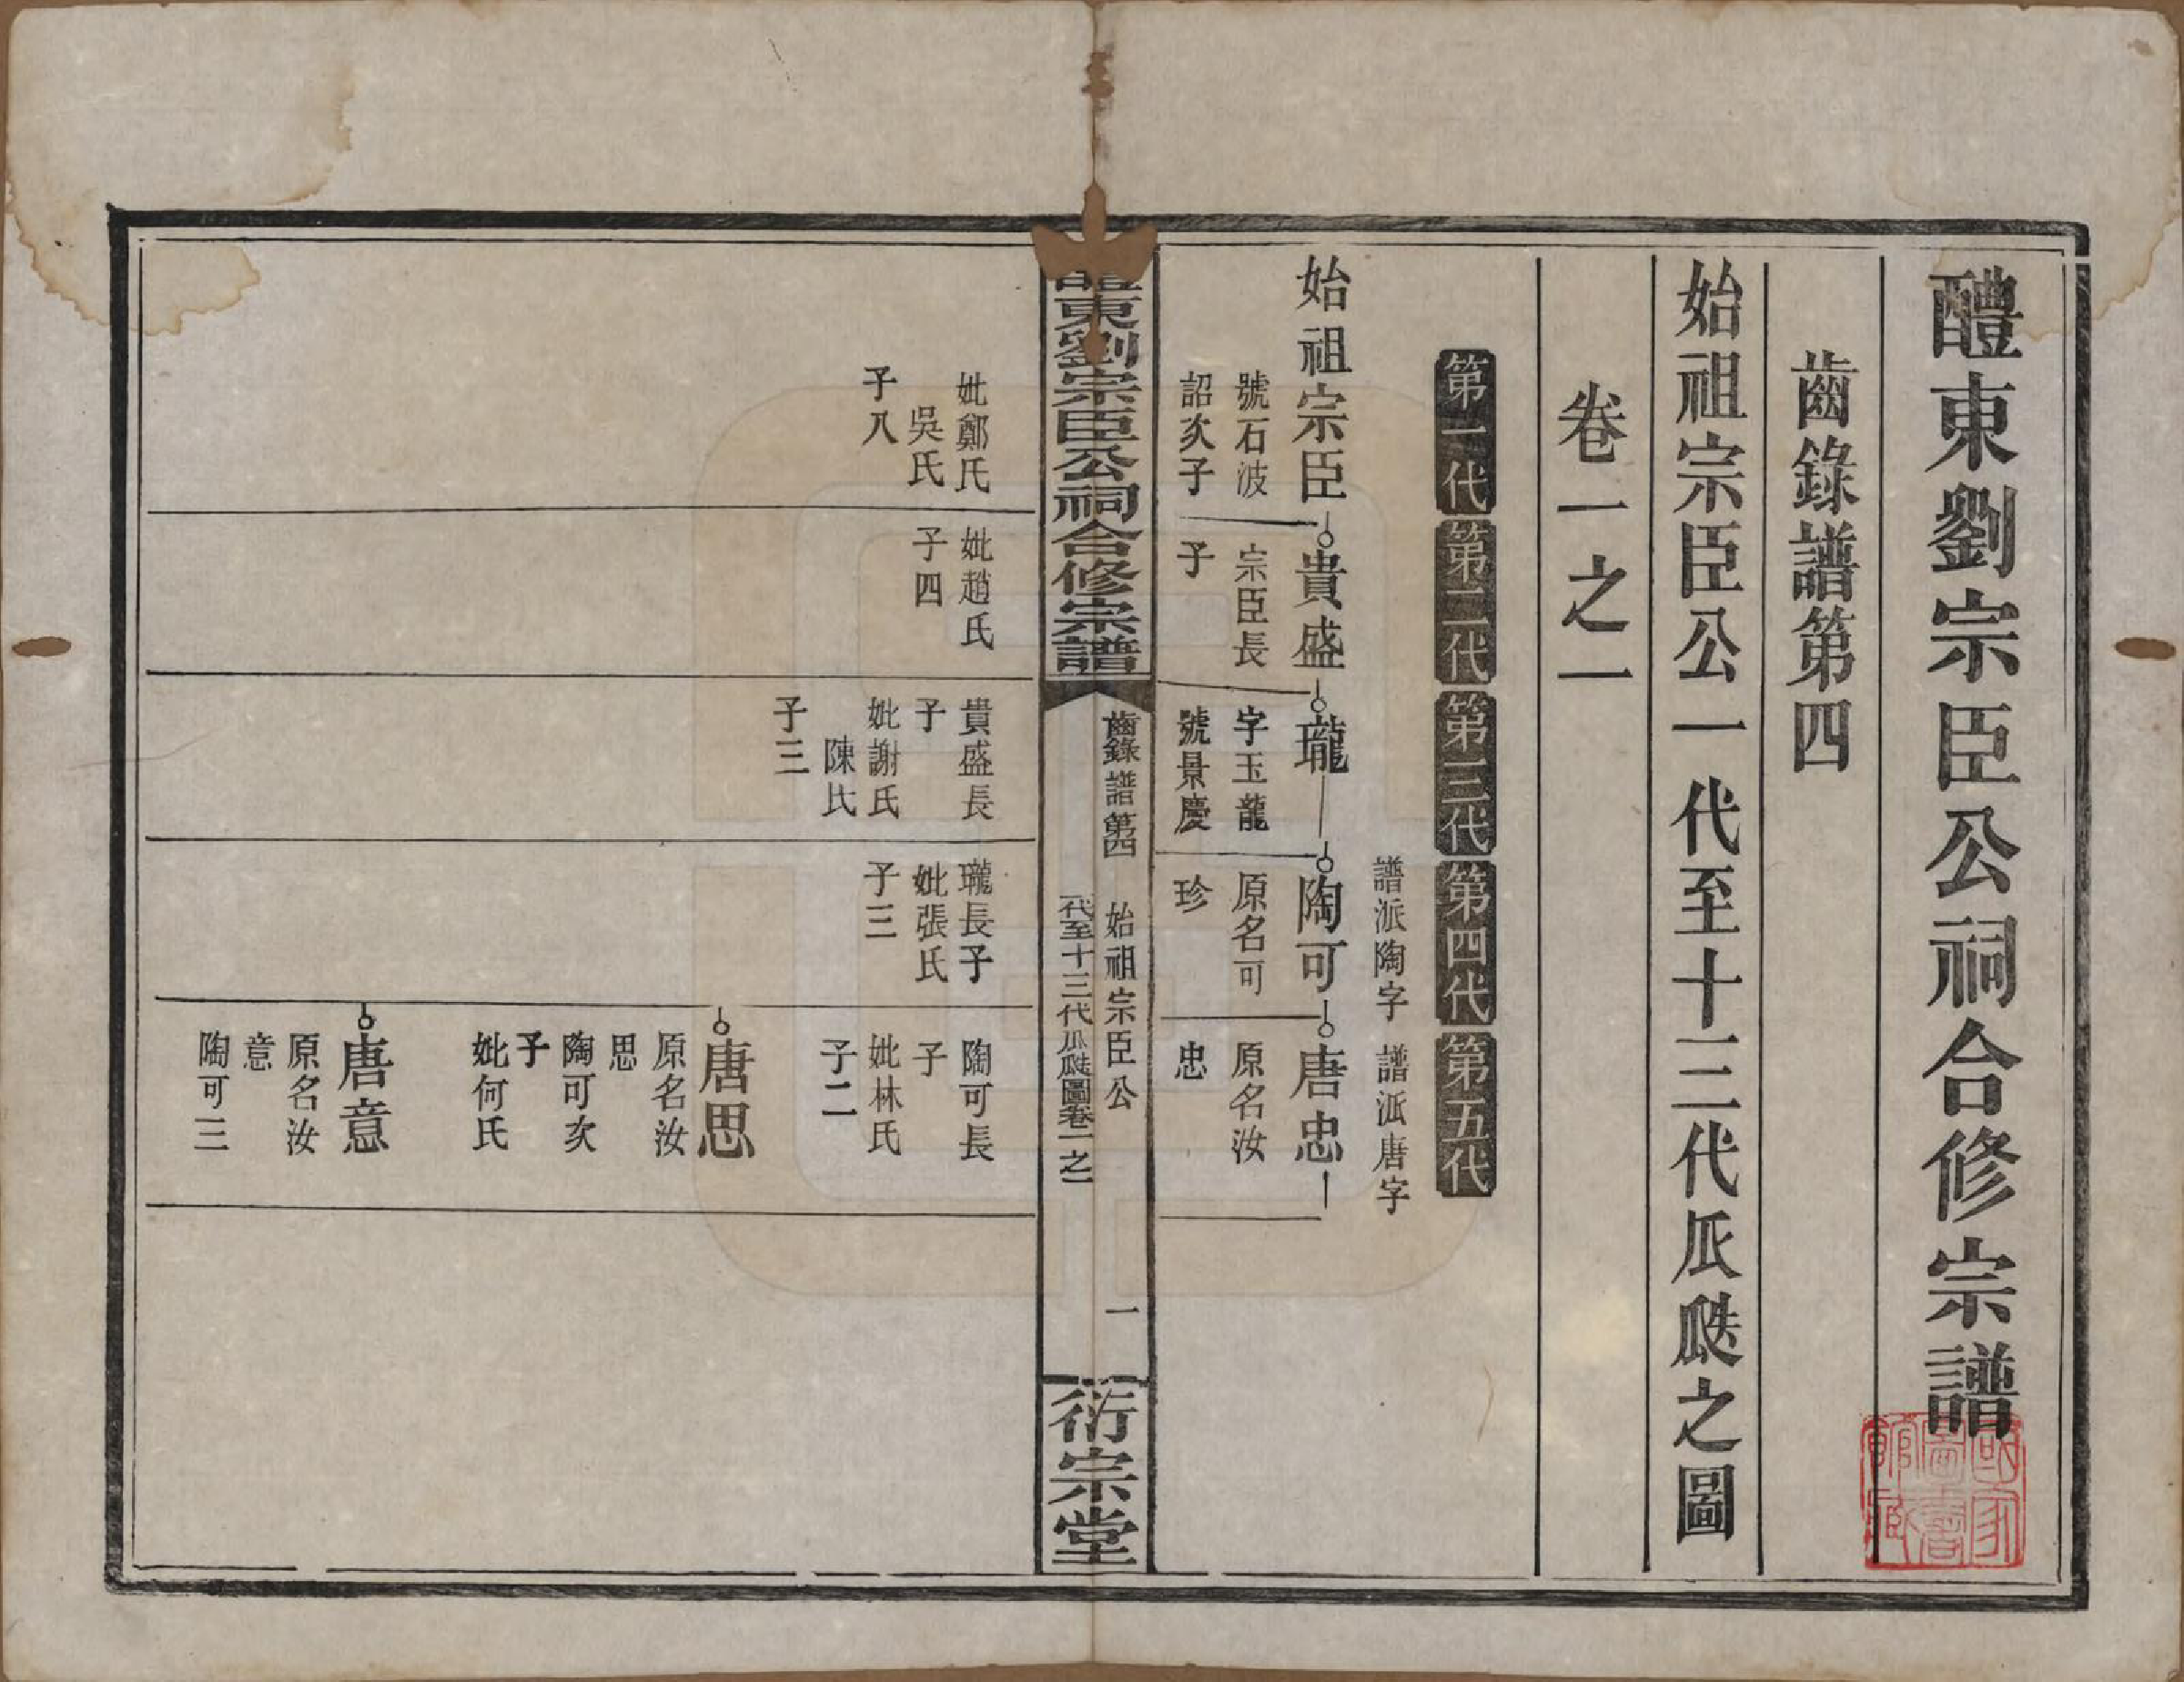 醴東劉宗臣公祠合修宗譜
齒錄譜第四
始祖宗臣公一代至十三代瓜瓞之圖
卷一之一
第一代
第二代
第三代
第四代
第五代
譜派陶字
譜派唐字
始祖宗臣
號石波
詔次子
貴盛
宗臣長
子
瓏
字玉龍
號景慶
陶可
原名可
珍
唐忠
原名汝
忠
醴東劉宗臣公祠合修宗譜
齒錄譜第四
始祖宗臣公
一代至十三代瓜瓞圖卷一之一
一
衍宗堂
妣鄭氏
吳氏
子八
妣趙氏
子四
貴盛長
子
妣謝氏
陳氏
子三
瓏長子
妣張氏
子三
陶可長
子
妣林氏
子二
唐思
原名汝
思
陶可次
子
妣何氏
唐意
原名汝
意
陶可三
國家圖書館藏